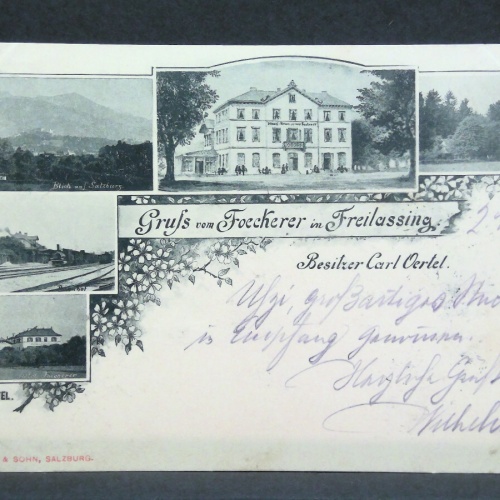 Blick auf Salzburg.
Gruss vom Foeckerer in Freilassing.
Besitzer Carl Oertel.
großartiges
in Empfang genommen.
Herzliche Grüß
Wilhelm
TEL.
& SOHN, SALZBURG.